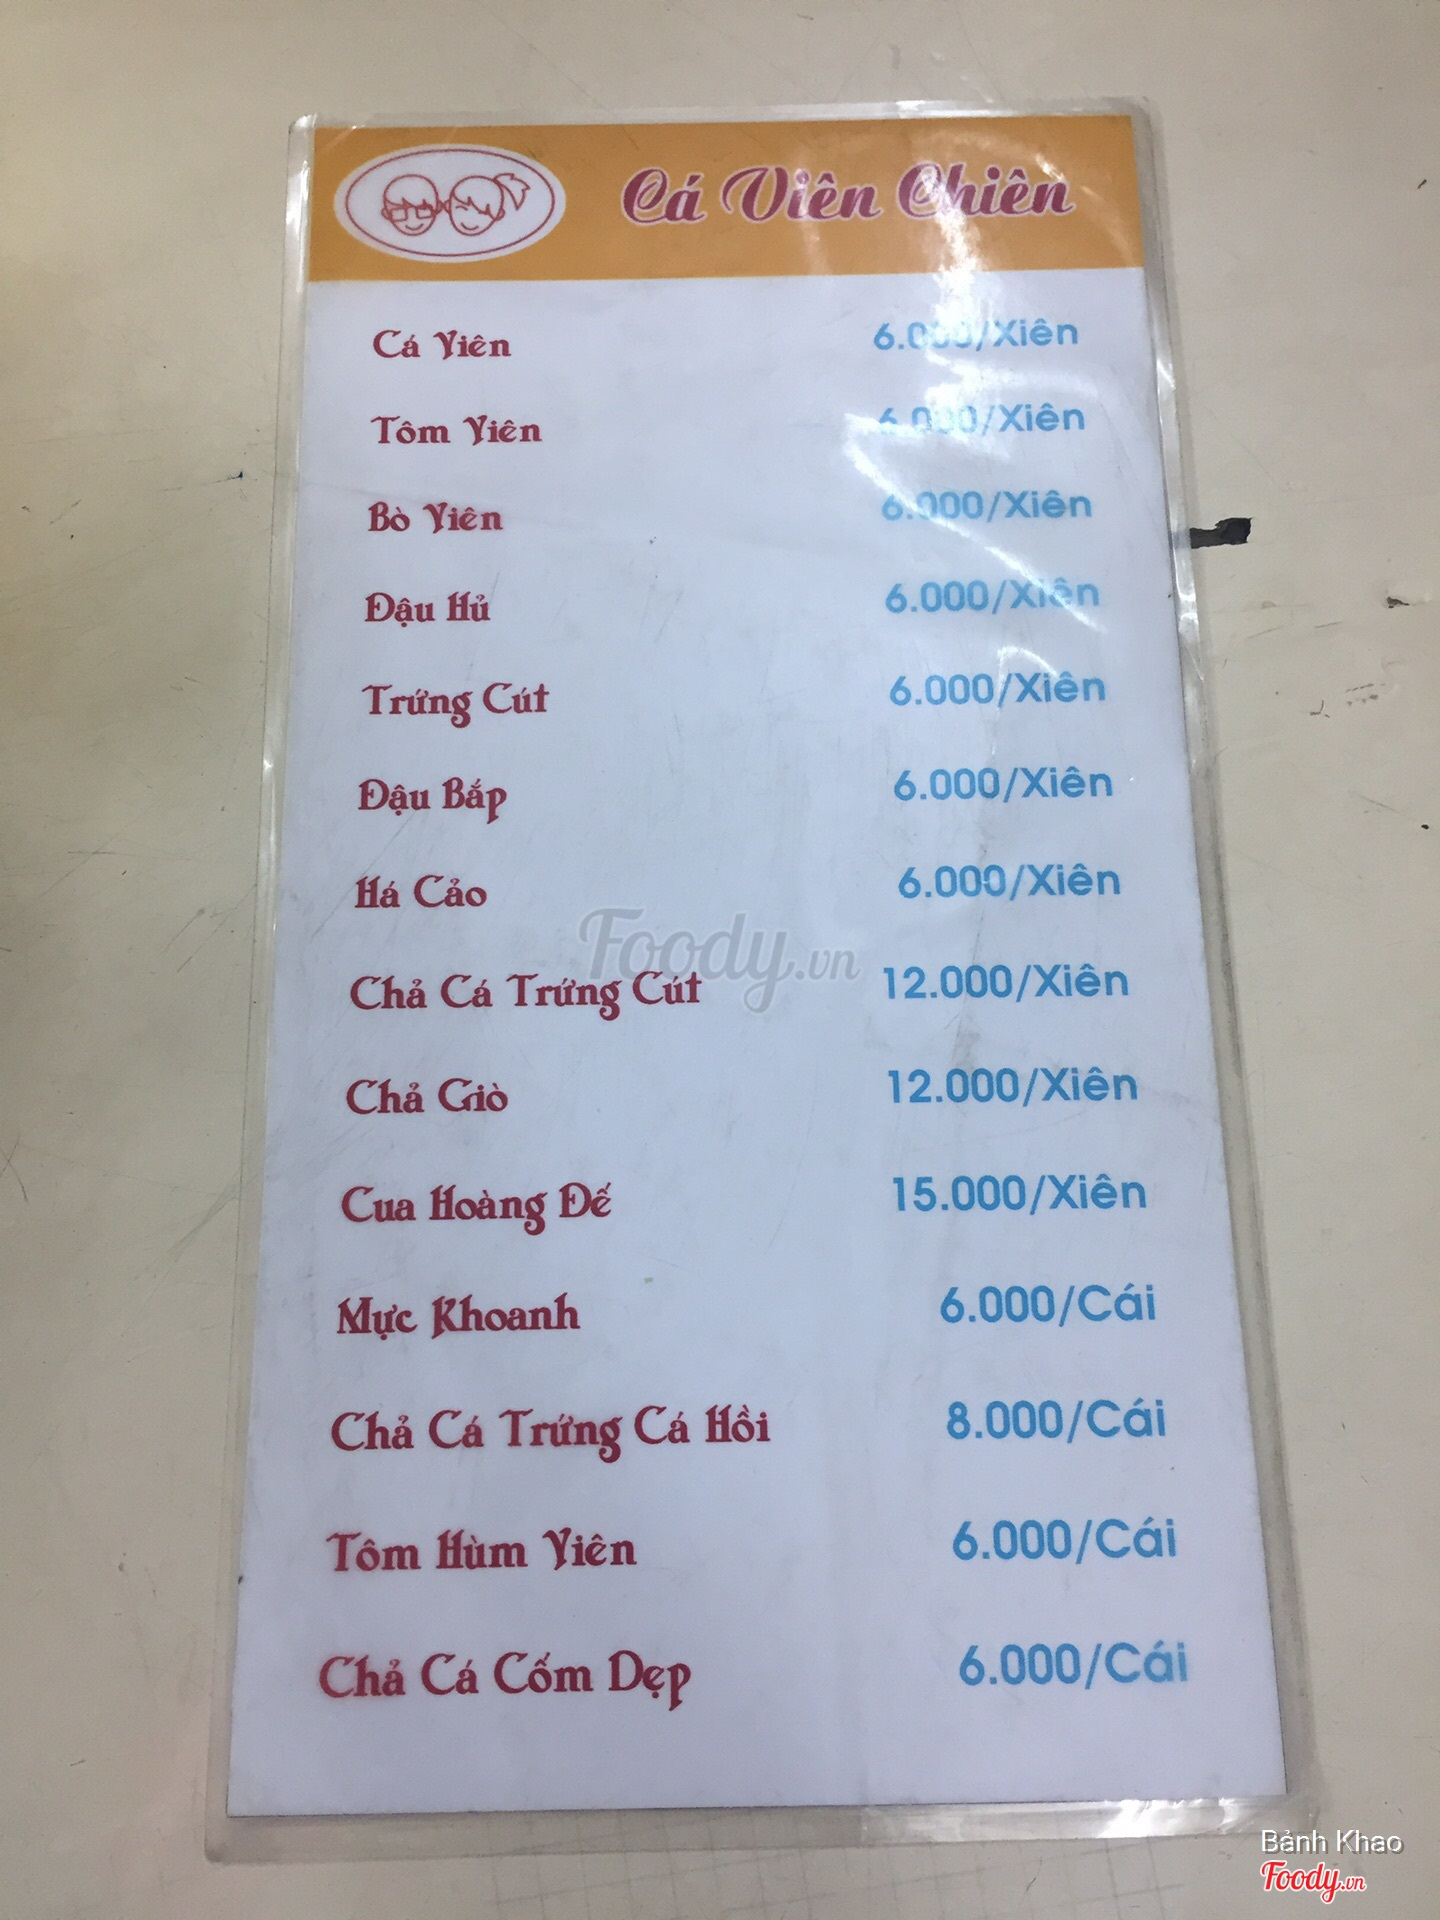 Cá Viên Chiên
Cá Viên 6.000/Xiên
Tôm Viên 6.000/Xiên
Bò Viên 6.000/Xiên
Đậu Hủ 6.000/Xiên
Trứng Cút 6.000/Xiên
Đậu Bắp 6.000/Xiên
Há Cảo 6.000/Xiên
Foody.vn
Chả Cá Trứng Cút 12.000/Xiên
Chả Giò 12.000/Xiên
Cua Hoàng Đế 15.000/Xiên
Mực Khoanh 6.000/Cái
Chả Cá Trứng Cá Hồi 8.000/Cái
Tôm Hùm Viên 6.000/Cái
Chả Cá Cốm Dẹp 6.000/Cái
Bảnh Khao
Foody.vn